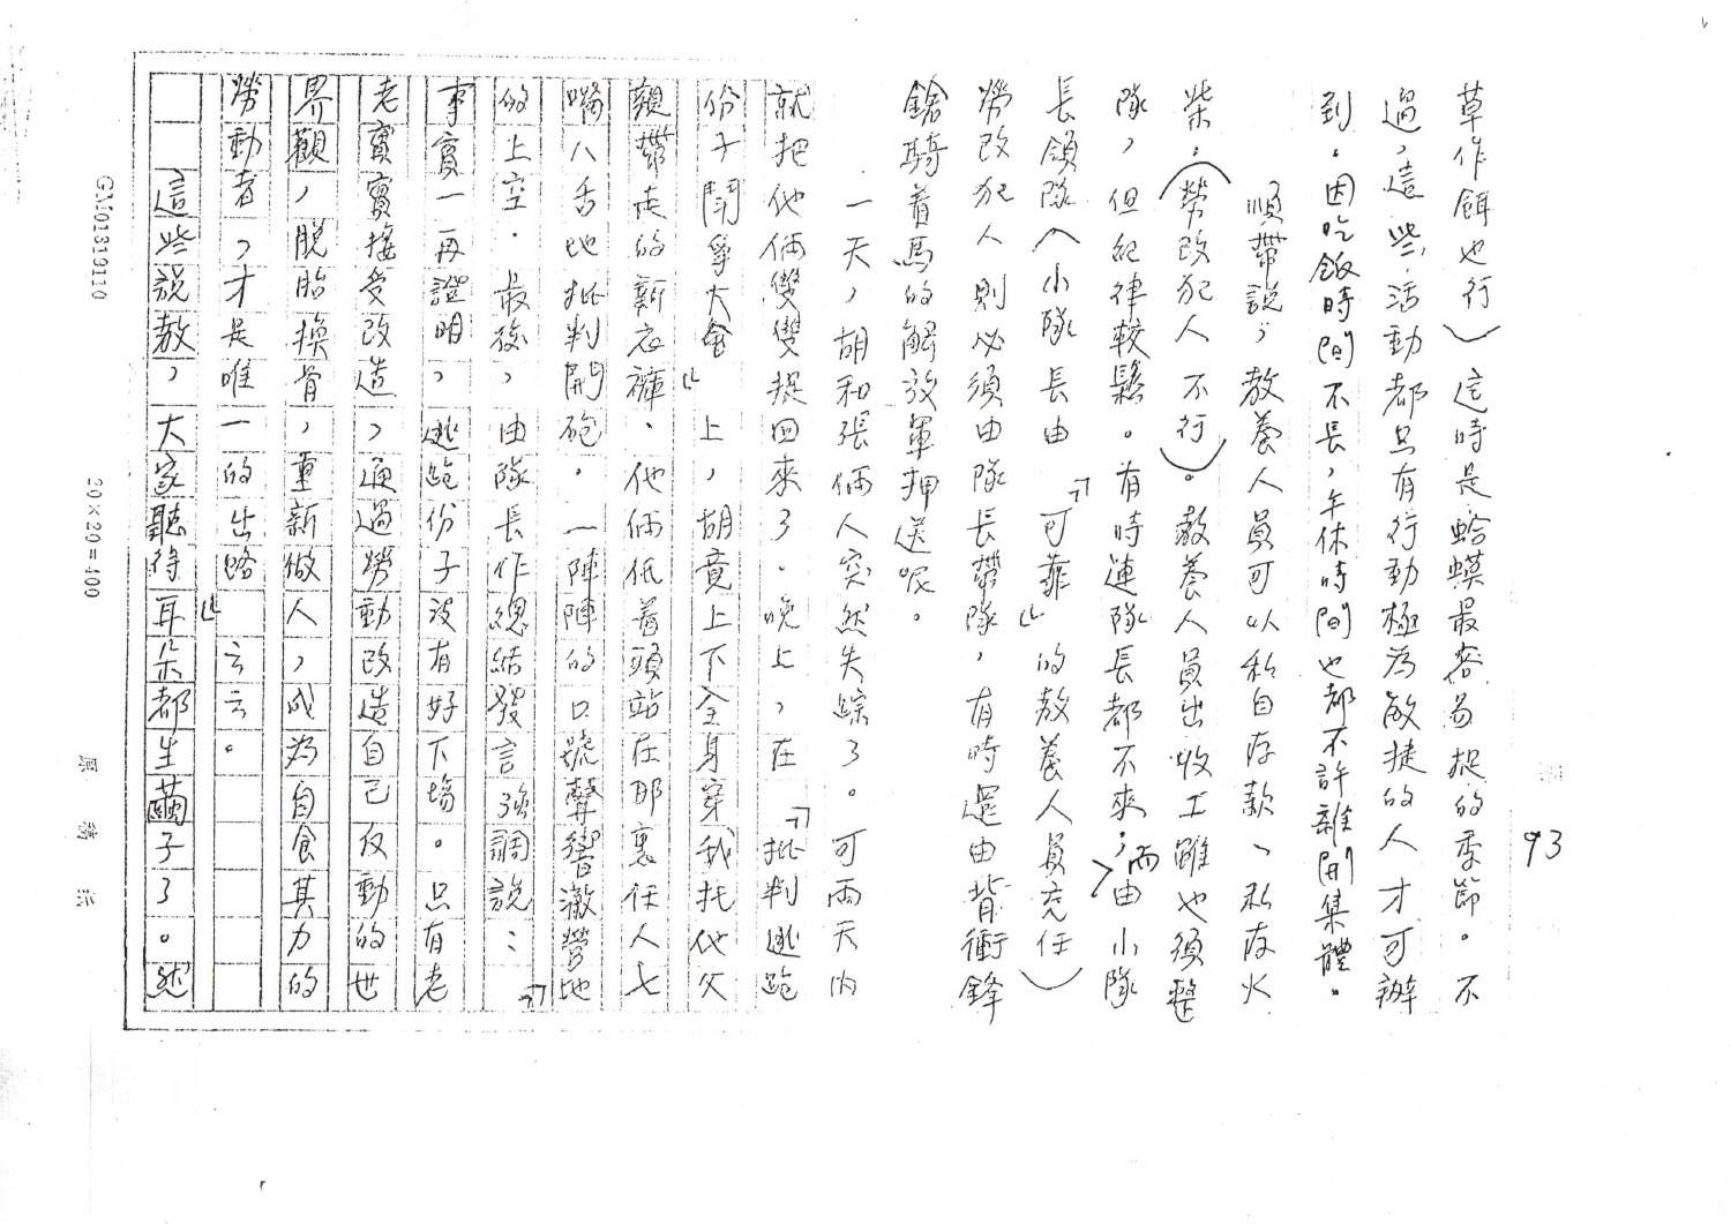 93
草作餌也行）這時是蛤蟆最容易捉的季節。不
過，這些活動都只有行動極為敏捷的人才可辦
到。因吃飯時間不長，午休時間也都不許離開集體。
順帶說，教養人員可以私自存款、私存火
柴。（勞改犯人不行）。教養人員出收工雖也須整
隊，但紀律較鬆。有時連隊長都不來，而由小隊
長領隊（小隊長由「可靠」的教養人員充任）
勞改犯人則必須由隊長帶隊，有時還由背衝鋒
鎗騎着馬的解放軍押送呢。
一天，胡和張倆人突然失綜了。可兩天內
就把他倆雙雙捉回來了。晚上，在「批判逃跑
份子鬥爭大會」上，胡竟上下全身穿我托他父
親帶走的新衣褲、他倆低着頭站在那裏任人七
嘴八舌地批判開砲。一陣陣的口號聲響澈營地
的上空。最後，由隊長作總結發言強調說：「
事實一再證明，逃跑份子没有好下場。只有老
老實實接受改造，通過勞動改造自己反動的世
界觀，脫胎換骨，重新做人，成為自食其力的
勞動者，才是唯一的出路」云云。
這些說教，大家聽得耳朵都生繭子了。然
GM01319110
20×20=400
原稿紙